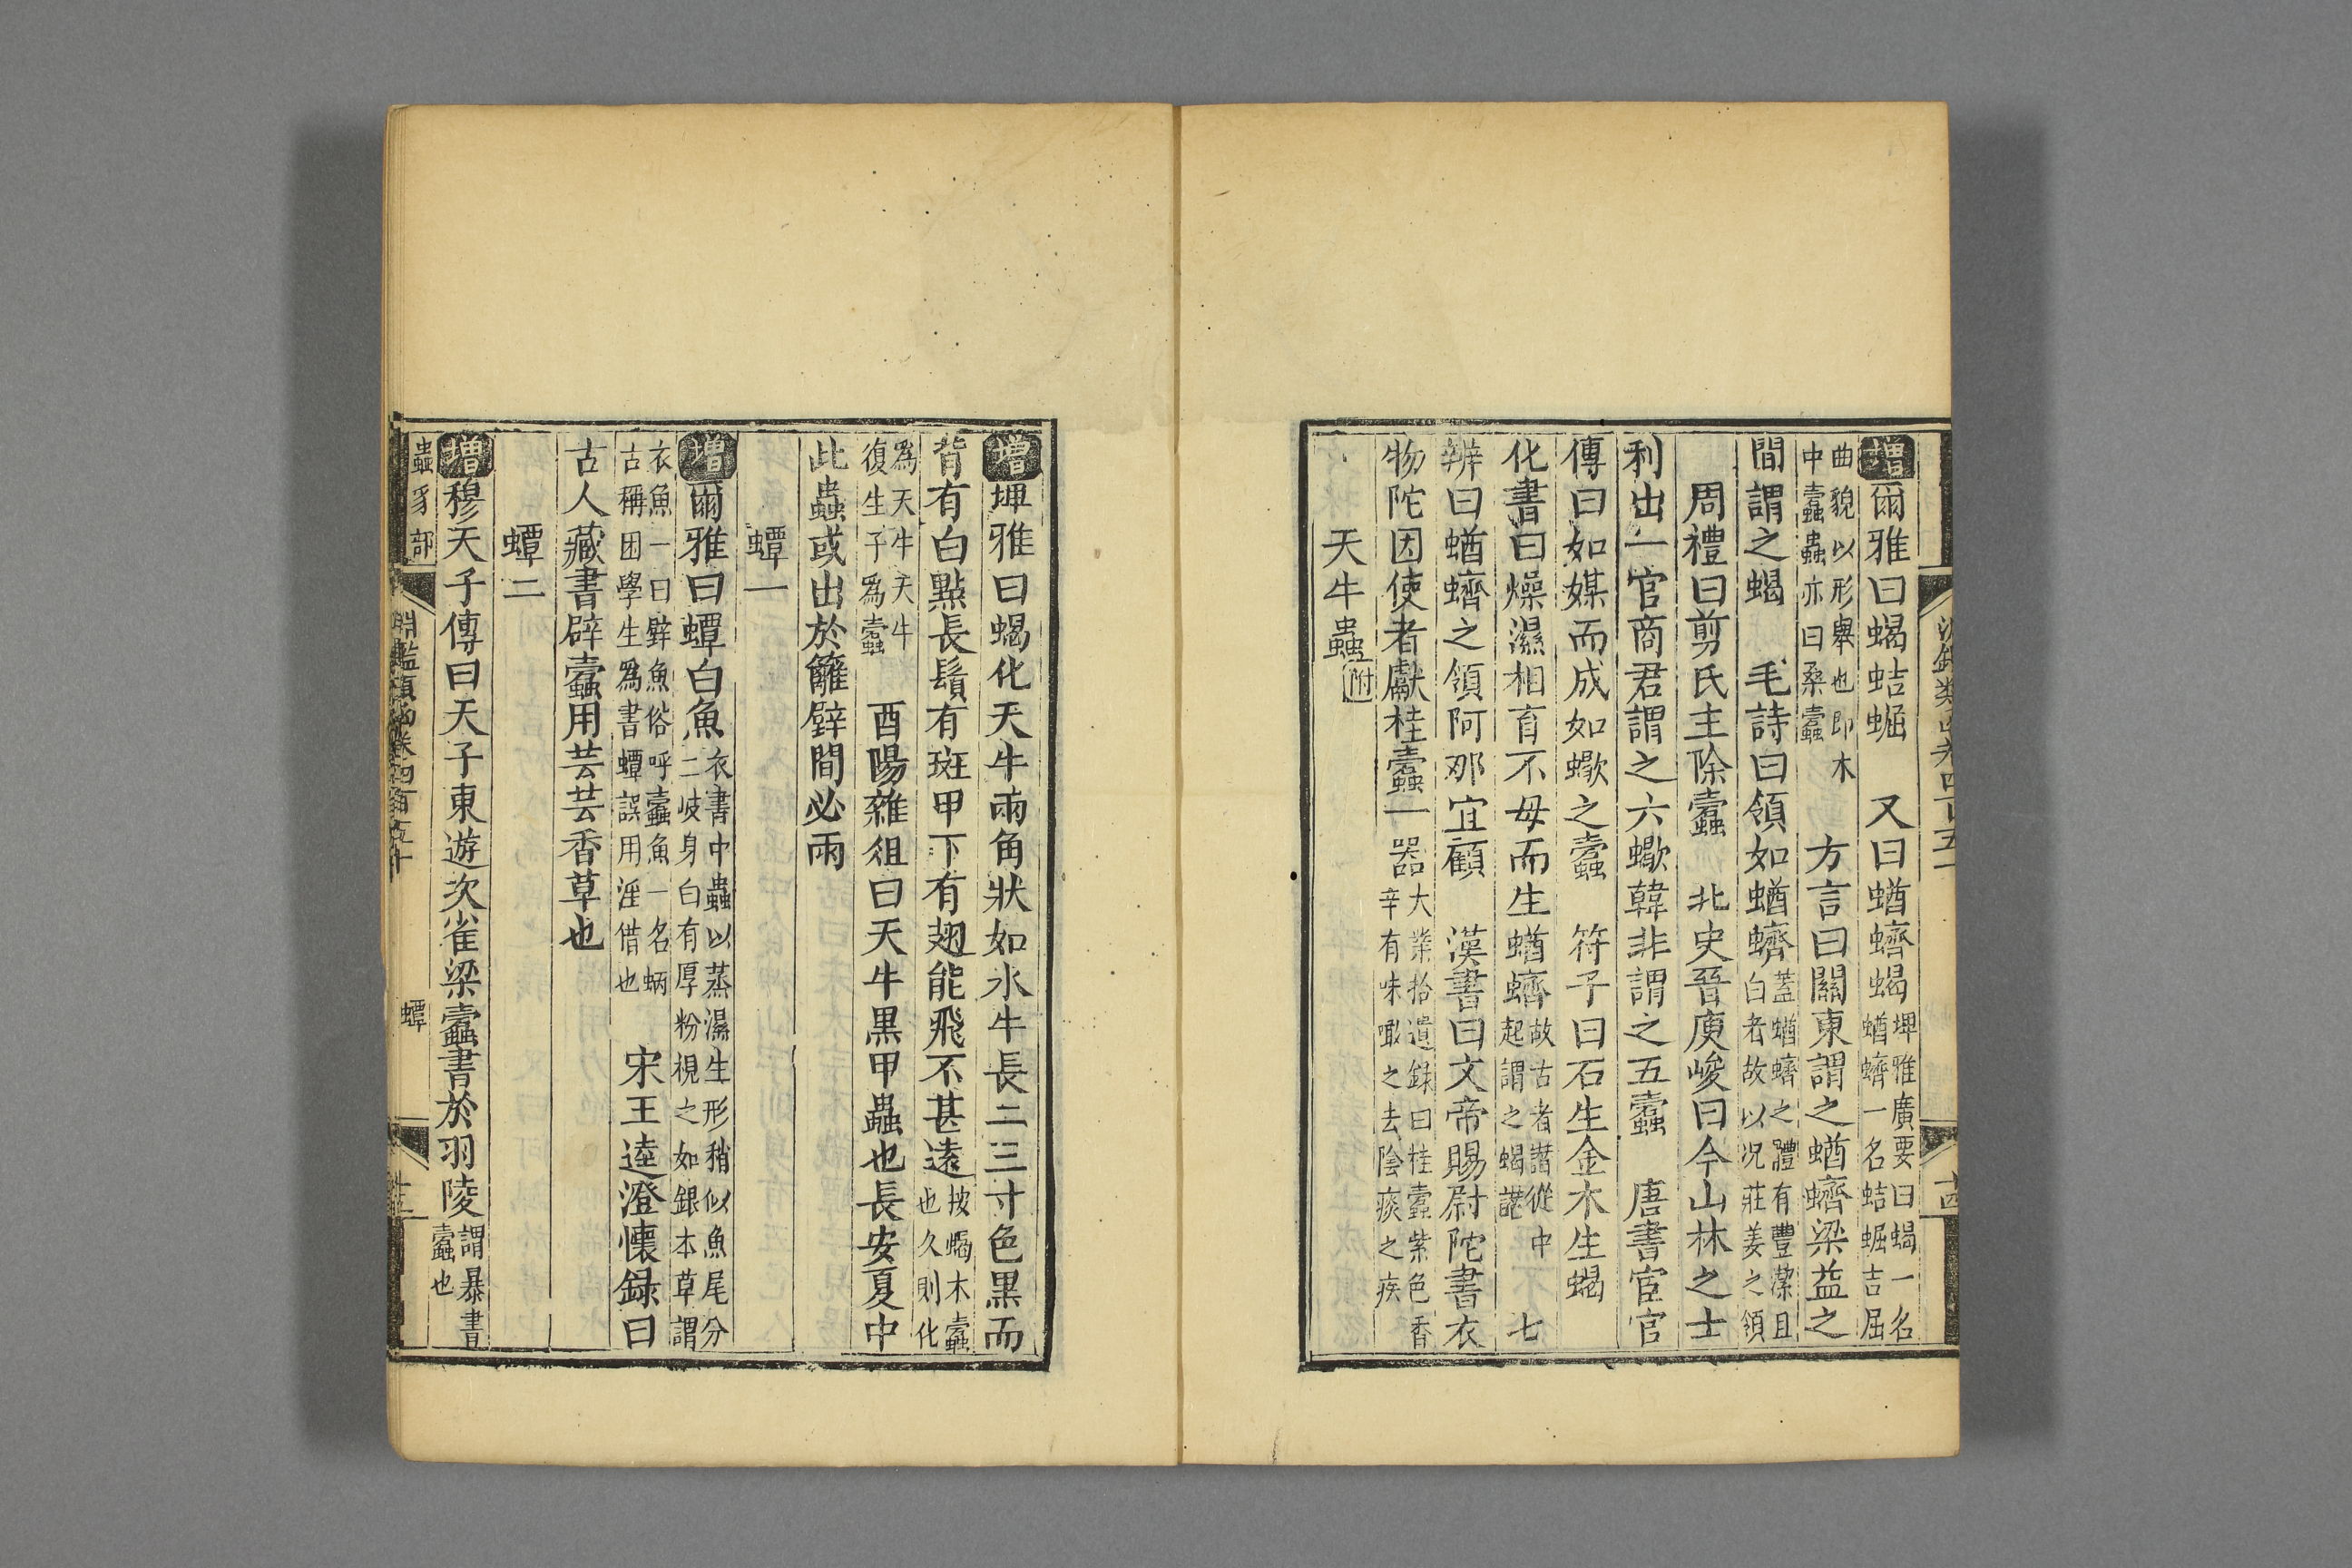 增爾雅曰蝎蛣蝠 又曰蝤蠐蝎埤雅廣要曰蝎一名蝤蠐一名蛣蝠吉屈
曲貌以形舉也即木中蠹蟲亦曰桑蠹 方言曰關東謂之蝤蠐梁益之
間謂之蝎 毛詩曰領如蝤蠐蓋蝤蠐之體有豐潔且白者故以况莊姜之領
周禮曰剪氏主除蠹 北史晉庾峻曰今山林之士
利出一官商君謂之六蠍韓非謂之五蠹 唐書宦官
傳曰如媒而成如蠍之蠹 符子曰石生金木生蝎
化書曰燥濕相育不母而生蝤蠐故古者譛從中起謂之蝎譛 七
辨曰蝤蠐之領阿那宜顧 漢書曰文帝賜尉陀書衣
物陀因使者獻桂蠹一器大業拾遺錄曰桂蠹紫色香辛有味噉之去陰痰之疾
天牛蟲附
增埤雅曰蝎化天牛兩角狀如水牛長二三寸色黑而
背有白點長鬚有斑甲下有翅能飛不甚遠按蝎木蠹也久則化
爲天牛天牛復生子爲蠹 酉陽雜俎曰天牛黑甲蟲也長安夏中
此蟲或出於籬壁間必雨
蟫一
增爾雅曰蟫白魚衣書中蟲以蒸濕生形稍似魚尾分二歧身白有厚粉視之如銀本草謂
衣魚一曰壁魚俗呼蠹魚一名蛃古稱困學生爲書蟫誤用淫借也 宋王逵澄懷録曰
古人藏書辟蠹用芸芸香草也
蟫二
增穆天子傳曰天子東遊次雀梁蠹書於羽陵謂暴書蠹也
蟲豸部
淵鑑類函卷四百五十
蟫